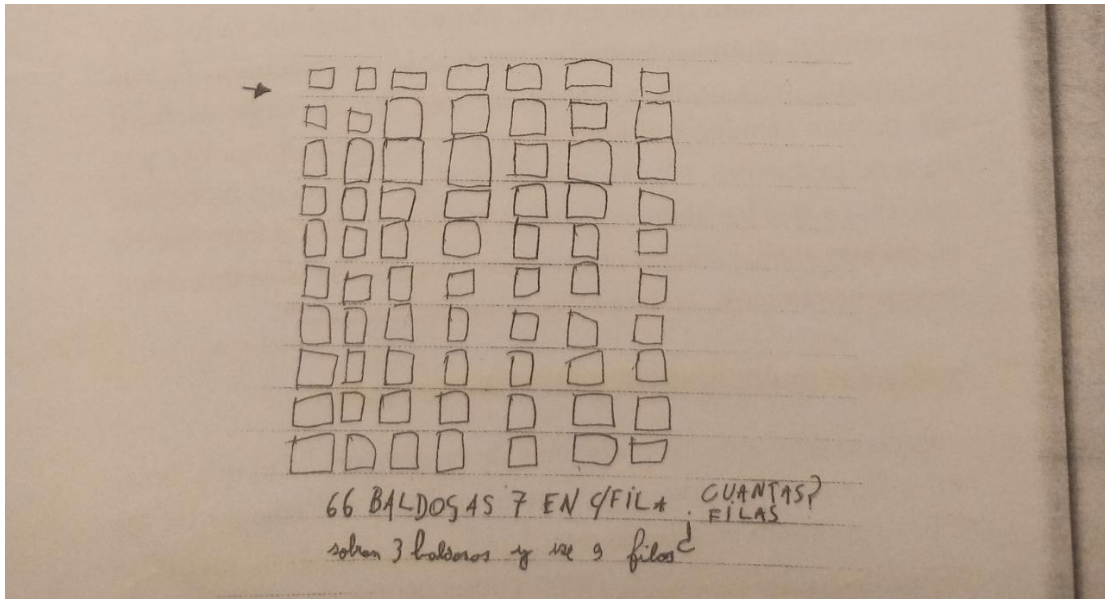 66 BALDOSAS 7 EN C/FILA ¿CUANTAS FILAS?
sobran 3 baldosas y use 9 filas